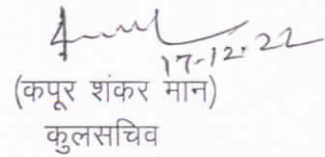 17-12-22
(कपूर शंकर मान)
कुलसचिव